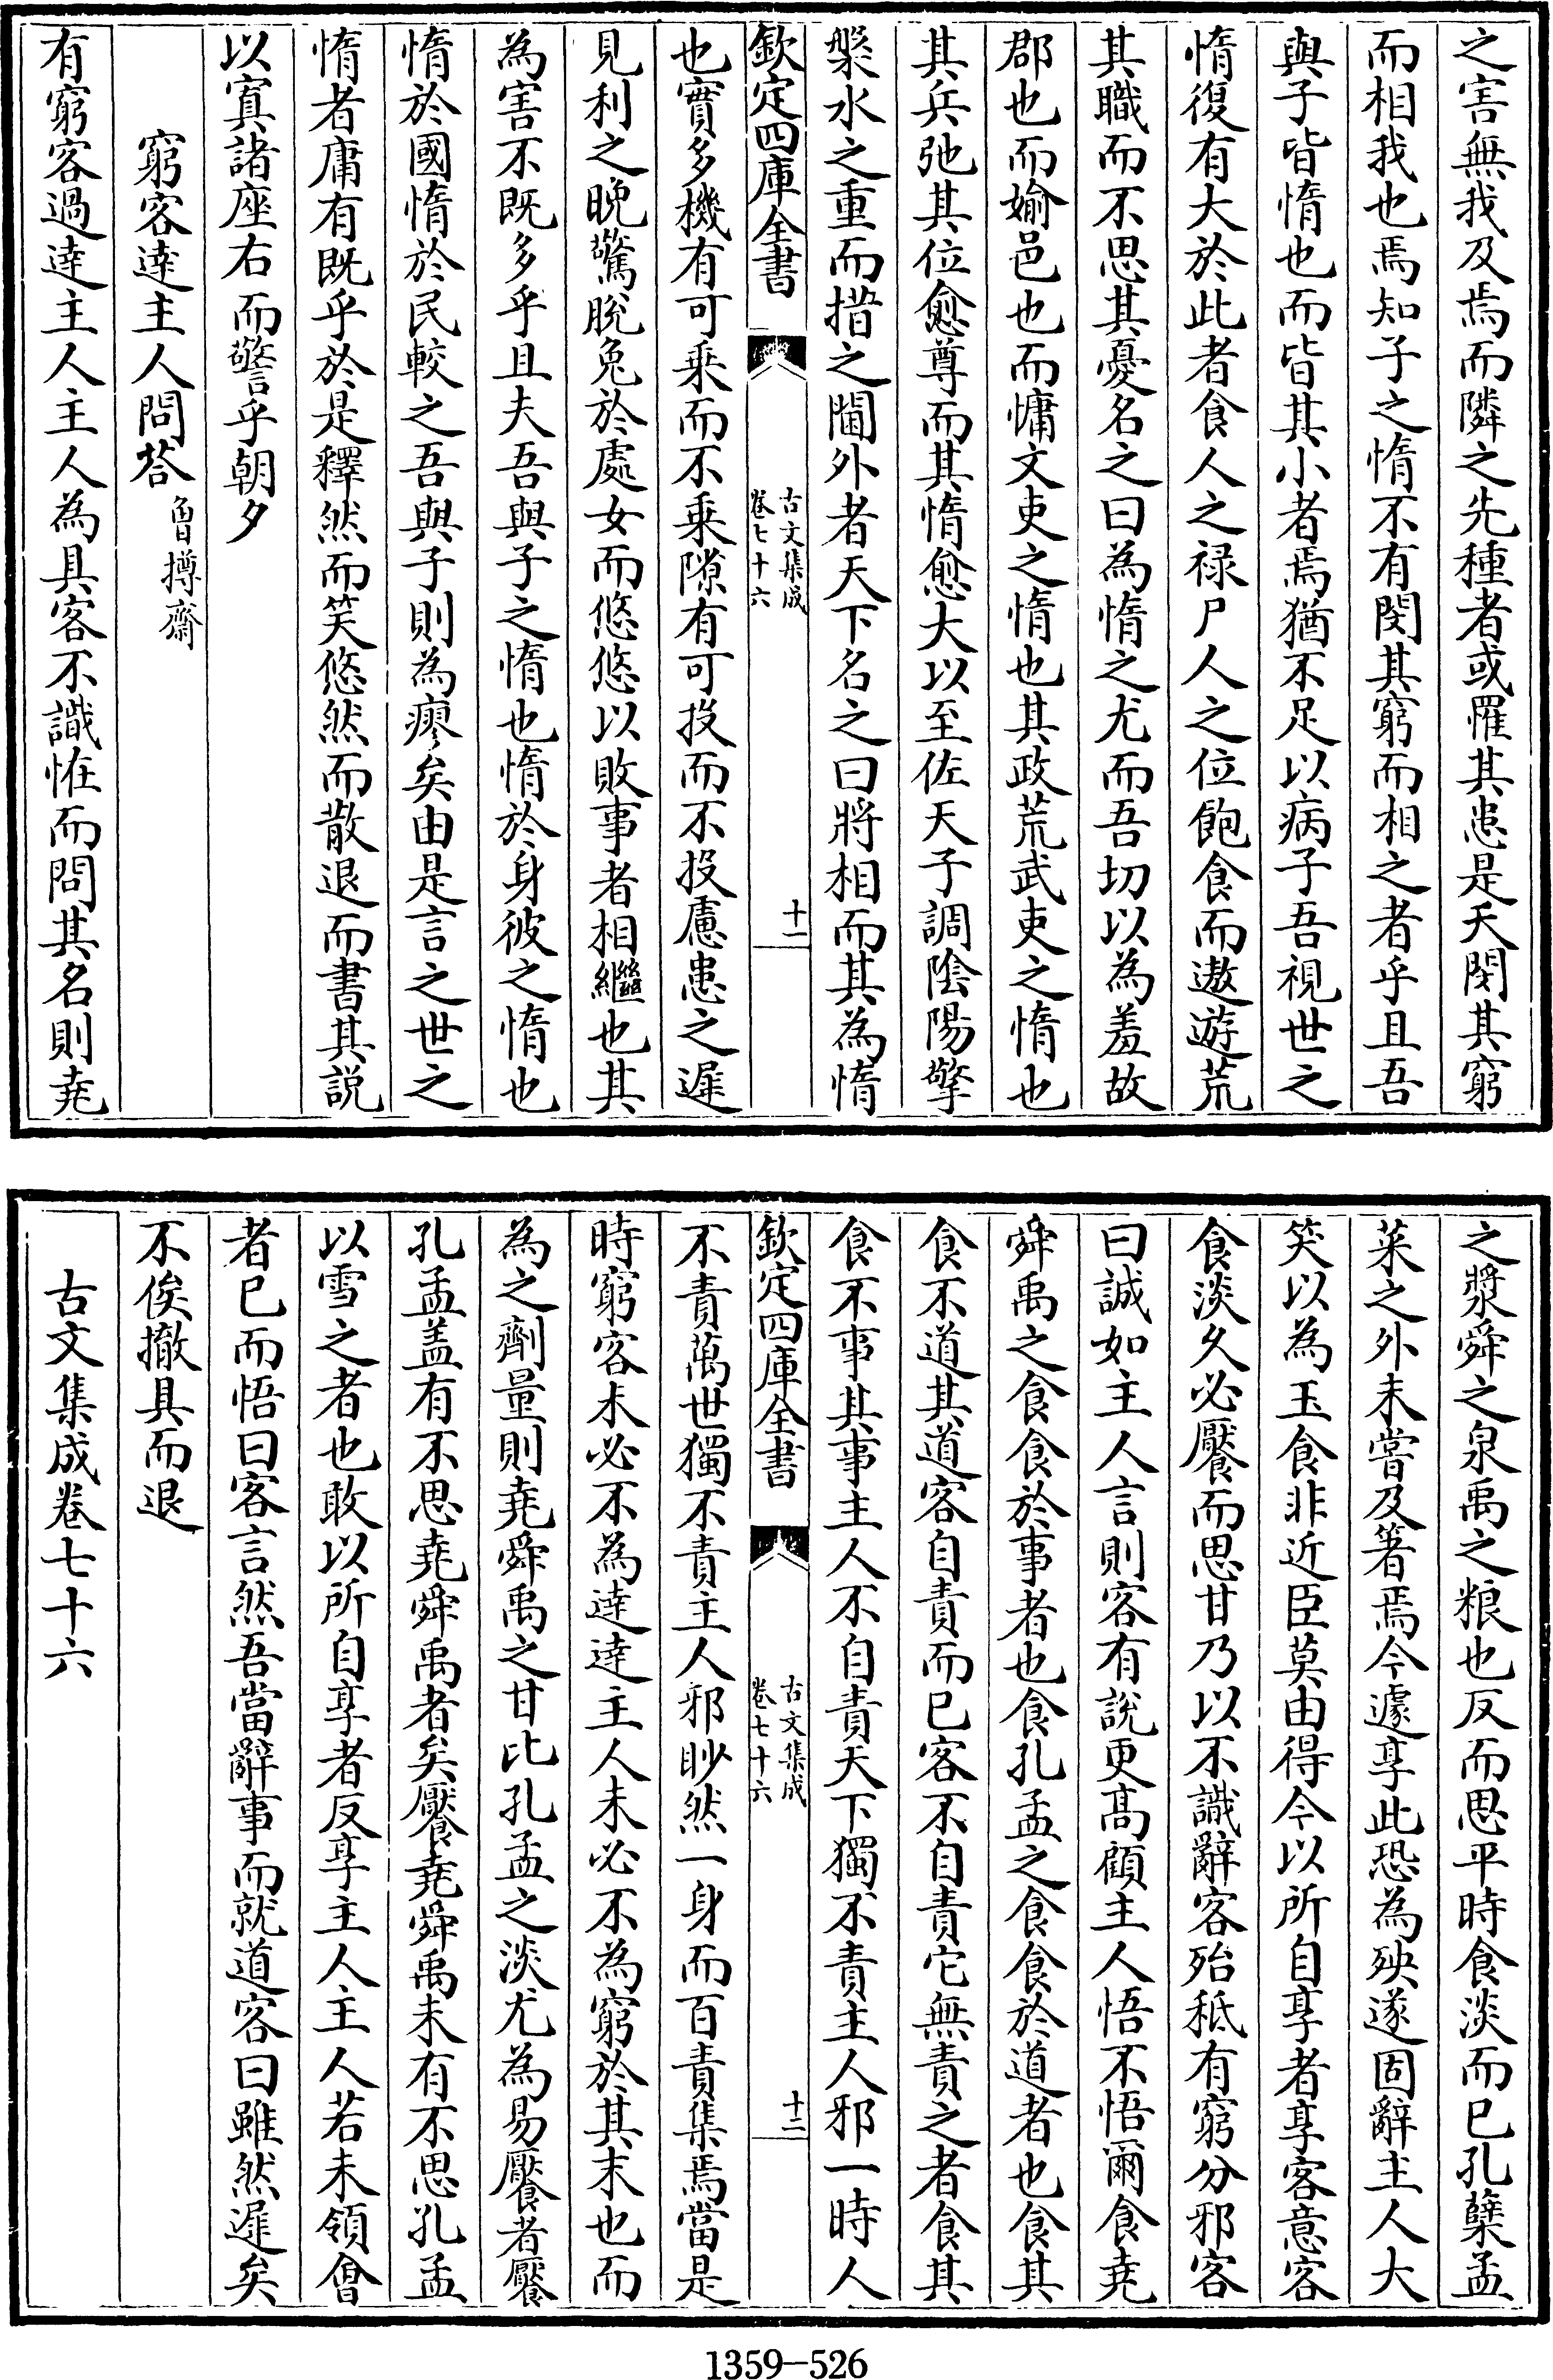 之害無我及焉而隣之先種者或罹其患是天閔其窮
而相我也焉知子之惰不有閔其窮而相之者乎且吾
與子皆惰也而皆其小者焉猶不足以病子吾視世之
惰復有大於此者食人之禄尸人之位飽食而遨遊荒
其職而不思其憂名之曰為惰之尤而吾切以為羞故
郡也而媮邑也而慵文吏之惰也其政荒武吏之惰也
其兵弛其位愈尊而其惰愈大以至佐天子調陰陽擎
槃水之重而措之閫外者天下名之曰將相而其為惰
欽定四庫全書
古文集成
卷七十六
十一
也實多機有可乗而不乗隙有可投而不投慮患之遲
見利之晚驚脫兔於處女而悠悠以敗事者相繼也其
為害不既多乎且夫吾與子之惰也惰於身彼之惰也
惰於國惰於民較之吾與子則為瘳矣由是言之世之
惰者庸有既乎於是釋然而笑悠然而散退而書其說
以寘諸座右而警乎朝夕
窮客達主人問荅 魯撙齋
有窮客過達主人主人為具客不識恠而問其名則堯
之漿舜之泉禹之粮也反而思平時食淡而已孔蘖孟
菜之外未嘗及箸焉今遽享此恐為殃遂固辭主人大
笑以為玉食非近臣莫由得今以所自享者享客意客
食淡久必饜而思甘乃以不識辭客殆秪有窮分邪客
曰誠如主人言則客有說更髙顧主人悟不悟爾食堯
舜禹之食食於事者也食孔孟之食食於道者也食其
食不道其道客自責而已客不自責它無責之者食其
食不事其事主人不自責天下獨不責主人邪一時人
欽定四庫全書
古文集成
卷七十六
十二
不責萬世獨不責主人邪眇然一身而百責集焉當是
時窮客未必不為達達主人未必不為窮於其末也而
為之劑量則堯舜禹之甘比孔孟之淡尤為易饜者饜
孔孟盖有不思堯舜禹者矣饜堯舜禹未有不思孔孟
以雪之者也敢以所自享者反享主人主人若未領會
者已而悟曰客言然吾當辭事而就道客曰雖然遲矣
不俟撤具而退
古文集成卷七十六
1359-526